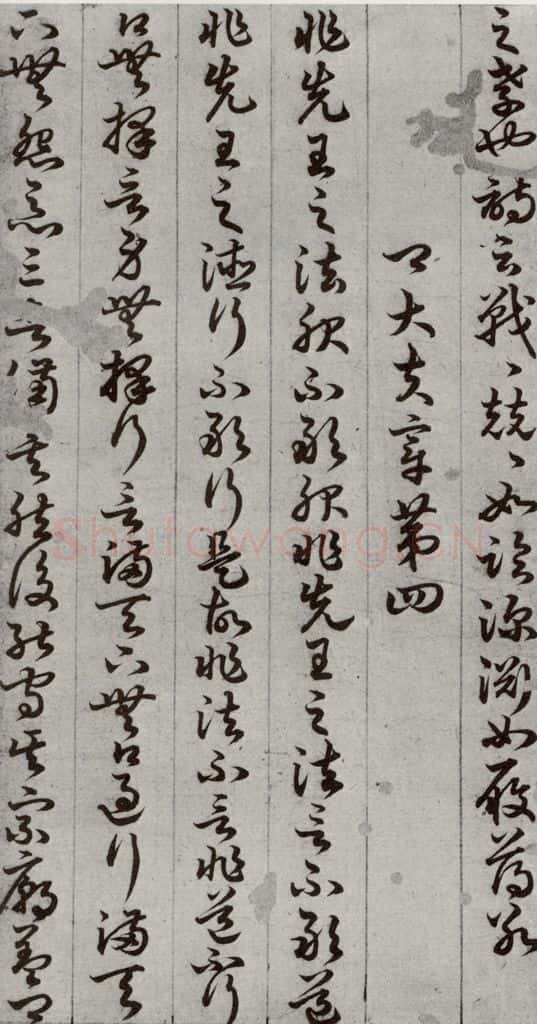 之孝也詩云戰〻兢〻如臨深淵如履薄冰
卿大夫章第四
非先王之法服不敢服非先王之法言不敢道
非先王之德行不敢行是故非法不言非道不行
口無擇言身無擇行言滿天下無口過行滿天
下無怨惡三者備矣然後能守其宗廟蓋卿
Shufawang.CN